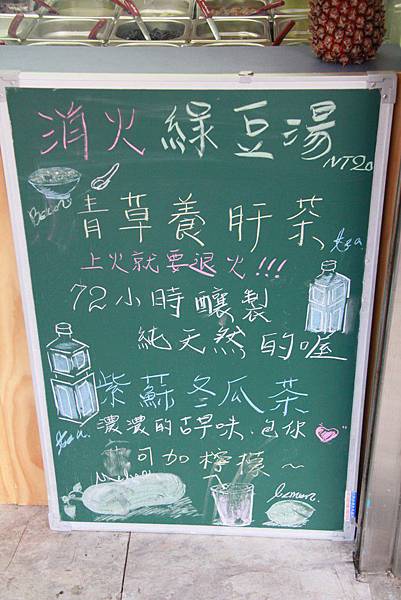 消火綠豆湯
NT20
青草養肝茶
tea
上火就要退火!!!
72小時釀製
純天然的喔
紫蘇冬瓜茶
tea
濃濃的古早味、包你♡
可加檸檬~
lemon